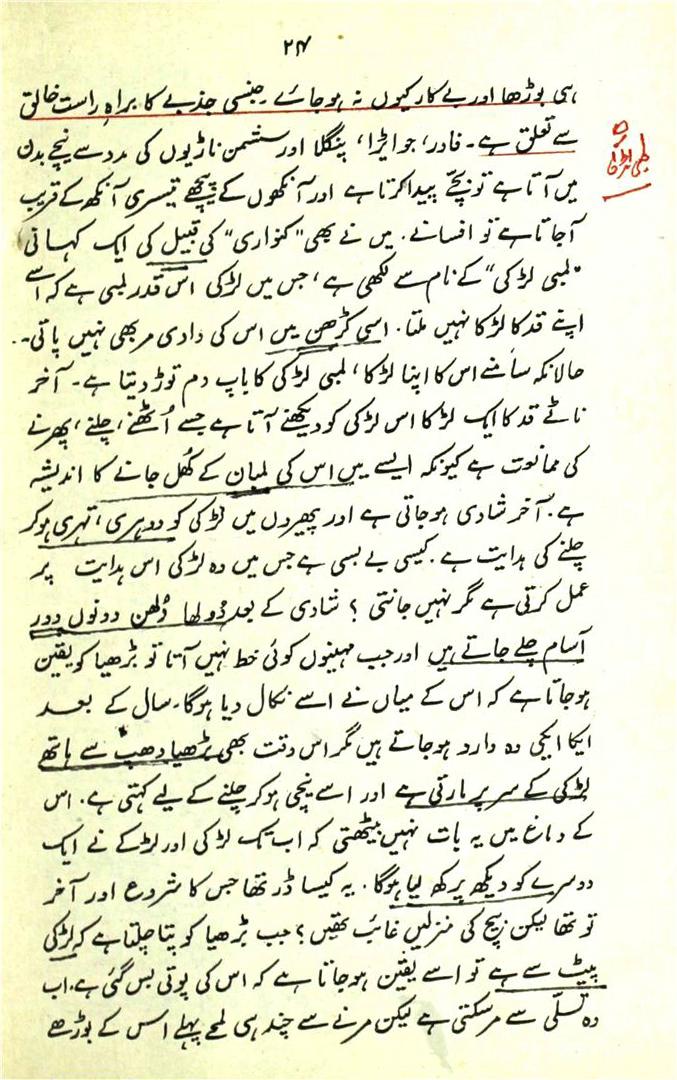 ۲۴
ہی بوڑھا اور بے کار کیوں نہ ہو جائے۔ جنسی جذبے کا براہِ راست خالق
سے تعلق ہے۔ قادر، جو ایڑا، پنگلا اور سشمن ناڑیوں کی مدد سے نیچے بدن
میں آتا ہے تو بچّے پیدا کرتا ہے اور آنکھوں کے پیچھے تیسری آنکھ کے قریب
آجاتا ہے تو افسانے۔ میں نے بھی "کنواری" کی قبیل کی ایک کہانی
"لمبی لڑکی" کے نام سے لکھی ہے، جس میں لڑکی اس قدر لمبی ہے کہ اسے
اپنے قد کا لڑکا نہیں ملتا۔ اسی کڑھن میں اس کی دادی مر بھی نہیں پاتی۔
حالانکہ سامنے اس کا اپنا لڑکا، لمبی لڑکی کا باپ دم توڑ دیتا ہے۔ آخر
ناٹے قد کا ایک لڑکا اس لڑکی کو دیکھنے آتا ہے جسے اُٹھنے، چلنے، پھرنے
کی ممانوت ہے کیونکہ ایسے میں اس کی لمبان کے کُھل جانے کا اندیشہ
ہے۔ آخر شادی ہوجاتی ہے اور پھیروں میں لڑکی کو دوہری، تہری ہو کر
چلنے کی ہدایت ہے۔ کیسی بے بسی ہے جس میں وہ لڑکی اس ہدایت پر
عمل کرتی ہے مگر نہیں جانتی؟ شادی کے بعد دُولھا دُلھن دونوں دور
آسام چلے جاتے ہیں اور جب مہینوں کوئی خط نہیں آتا تو بڑھیا کو یقین
ہوجاتا ہے کہ اس کے میاں نے اسے نکال دیا ہوگا۔ سال کے بعد
ایکا ایکی وہ وارد ہوجاتے ہیں مگر اس وقت بھی بڑھیا دھپ سے ہاتھ
لڑکی کے سر پر مارتی ہے اور اسے نیچی ہو کر چلنے کے لیے کہتی ہے۔ اس
کے دماغ میں یہ بات نہیں بیٹھتی کہ اب تک لڑکی اور لڑکے نے ایک
دوسرے کو دیکھ پرکھ لیا ہوگا۔ یہ کیسا ڈر تھا جس کا شروع اور آخر
تو تھا لیکن بیچ کی منزلیں غائب تھیں؟ جب بڑھیا کو پتا چلتا ہے کہ لڑکی
پیٹ سے ہے تو اسے یقین ہوجاتا ہے کہ اس کی پوتی بس گئی ہے۔ اب
وہ تسلّی سے مر سکتی ہے لیکن مرنے سے چند ہی لمحے پہلے اس کے بوڑھے
لمبی لڑکی